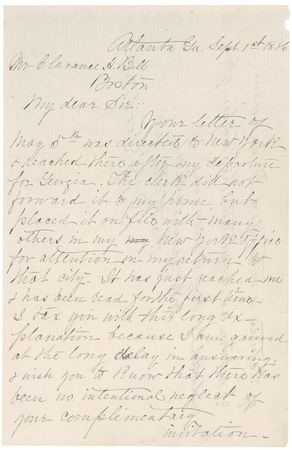 Atlanta Ga. Sept 1st 1886
Mr Clarance A. Bell
Boston
My dear Sir:
Your letter of
May 5th was directed to New York
& reached there after my departure
for Georgia. The clerk did not
forward it to my home but
placed it on file with many
others in my my New York office
for attention on my return to
that city. It has just reached me
& has been read for the first time.
I tax you with this long ex-
planation because I am grieved
at the long delay in answering
& wish you to know that there has
been no intentional neglect of
your complimentary
invitation.